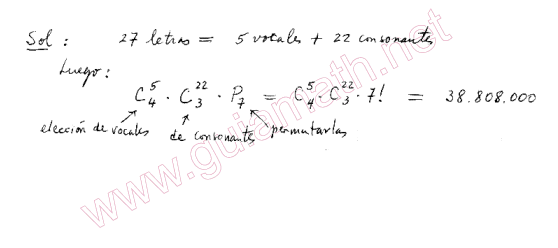 Sol : 27 letras = 5 vocales + 22 consonantes
Luego :
C₄⁵ · C₃²² · P₇ = C₄⁵ · C₃²² · 7! = 38.808.000
elección de vocales de consonantes permutarlas
www.guiamath.net